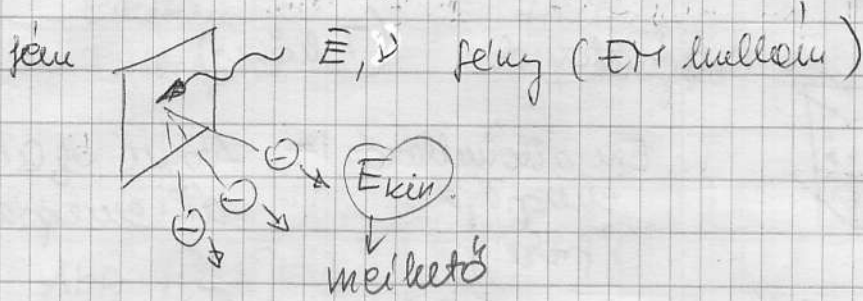 fém Ē, ν fény (EM hullám)
⊖ E kin.
⊖
⊖
mérhető